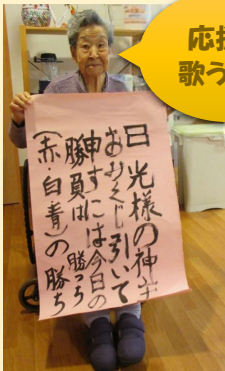 応援
歌う
日光様の神
おみくじ引いて
申すには今日の
勝負は 勝っち
(赤・白・青)の勝ち